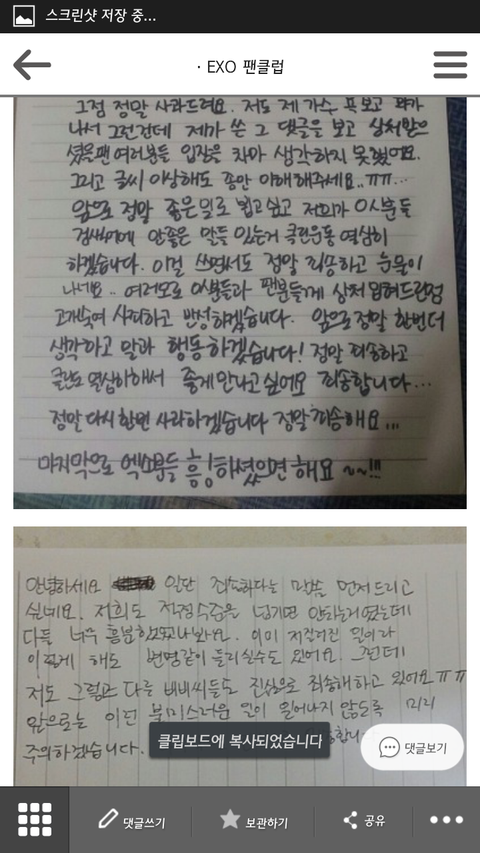 스크린샷 저장 중...
· EXO 팬클럽
그점 정말 사과드려요. 저도 제 가수 욕보고 화가
나서 그런건데 제가 쓴 그 댓글을 보고 상처받으
셨을 팬 여러분들 입장을 차마 생각하지 못했어요.
그리고 글씨 이상해도 좀만 이해해주세요..ㅠㅠ...
앞으로 정말 좋은일로 뵙고싶고 저희가 0시분들
검색어에 안좋은 말들 있는거 클린운동 열심히
하겠습니다. 이걸 쓰면서도 정말 죄송하고 눈물이
나네요.. 여러모로 0시분들과 팬분들께 상처 입혀드린점
고개숙여 사죄하고 반성하겠습니다. 앞으로 정말 한번 더
생각하고 말과 행동하겠습니다! 정말 죄송하고
클린도 열심히해서 좋게 만나고싶어요 죄송합니다...
정말 다시한번 사과하겠습니다 정말 죄송해요...
마지막으로 엑소분들 흥하셨으면 해요 ~~!!!
안녕하세요 일단 죄송하다는 말씀 먼저 드리고
싶네요. 저희도 적정수준을 넘기면 안되는거였는데
다들 너무 흥분했었나봐요. 이미 저질러진 일이라
이렇게 해도 변명같이 들리실수도 있어요. 그런데
저도 그렇고 다른 비비씨들도 진심으로 죄송해하고 있어요ㅠㅠ
앞으로는 이런 불미스러운 일이 일어나지 않도록 미리
주의하겠습니다.
클립보드에 복사되었습니다
댓글보기
댓글쓰기
보관하기
공유